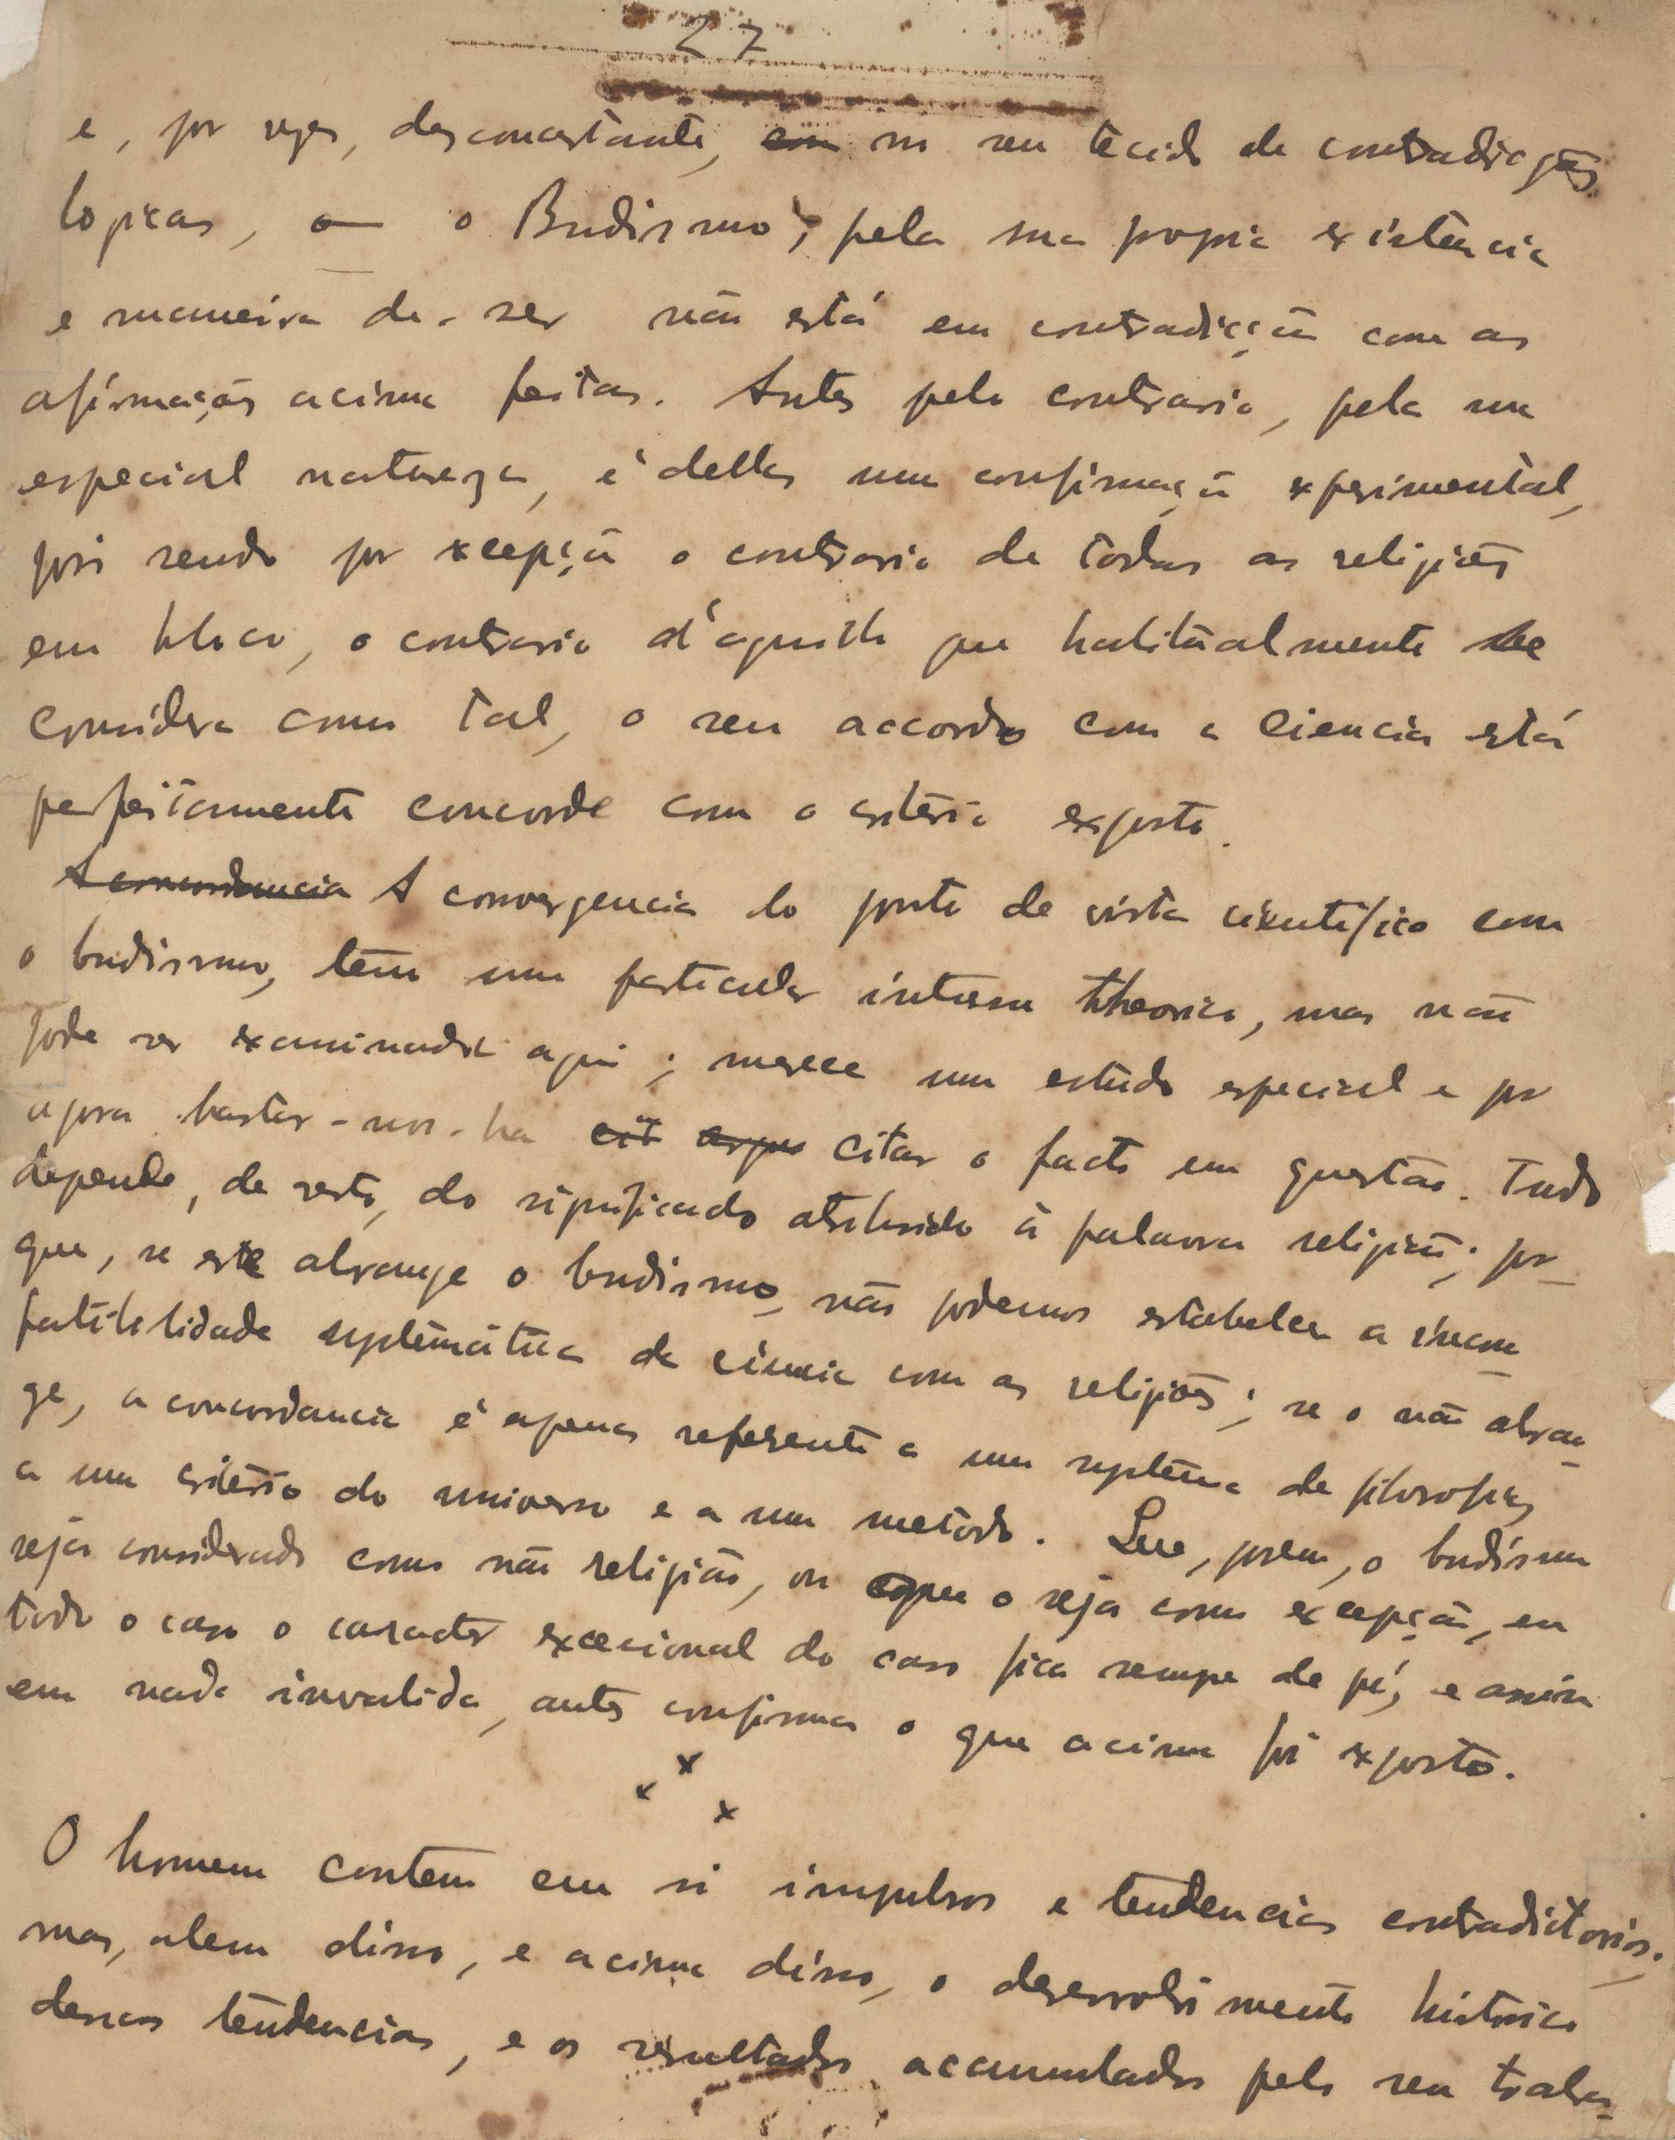 27
e, por vezes, desconcertante, com no seu tecido de contradicções
logicas, o — o Budismo, pela sua propria existencia
e maneira de-ser não está em contradicção com as
afirmações acima feitas. Antes pelo contrario, pela sua
especial natureza, é dellas uma confirmação experimental,
pois sendo por excepção o contrario de todas as religiões
em bloco, o contrario d'aquillo que habitualmente se
considera como tal, o seu accordo com a ciencia está
perfeitamente concorde com o critério exposto.
A concordancia A convergencia do ponto de vista cientifico com
o budismo, tem um particular interesse theorico, mas não
pode ser examinada aqui; merece um estudo especial e por
agora bastar-nos-ha cit citar o facto em questão. Tudo
depende, de resto, do significado atribuido á palavra religião; por-
que, se este abrange o budismo, não podemos estabelecer a incom-
patibilidade systemática da ciencia com as religiões; se o não abran-
ge, a concordancia é apenas referente a um systema de filosofia,
a um critério do universo e a um metodo. Que, porem, o budismo
seja considerado como não religião, ou que o seja como excepção, em
todo o caso o caracter excecional do caso fica sempre de pé, e assim
em nada invalida, antes confirma o que acima foi exposto.
x x x
O homem contem em si impulsos e tendencias contradictorios;
mas, alem disso, e acima disso, o desenvolvimento historico
dessas tendencias, e os resultados accumulados pelo seu traba-